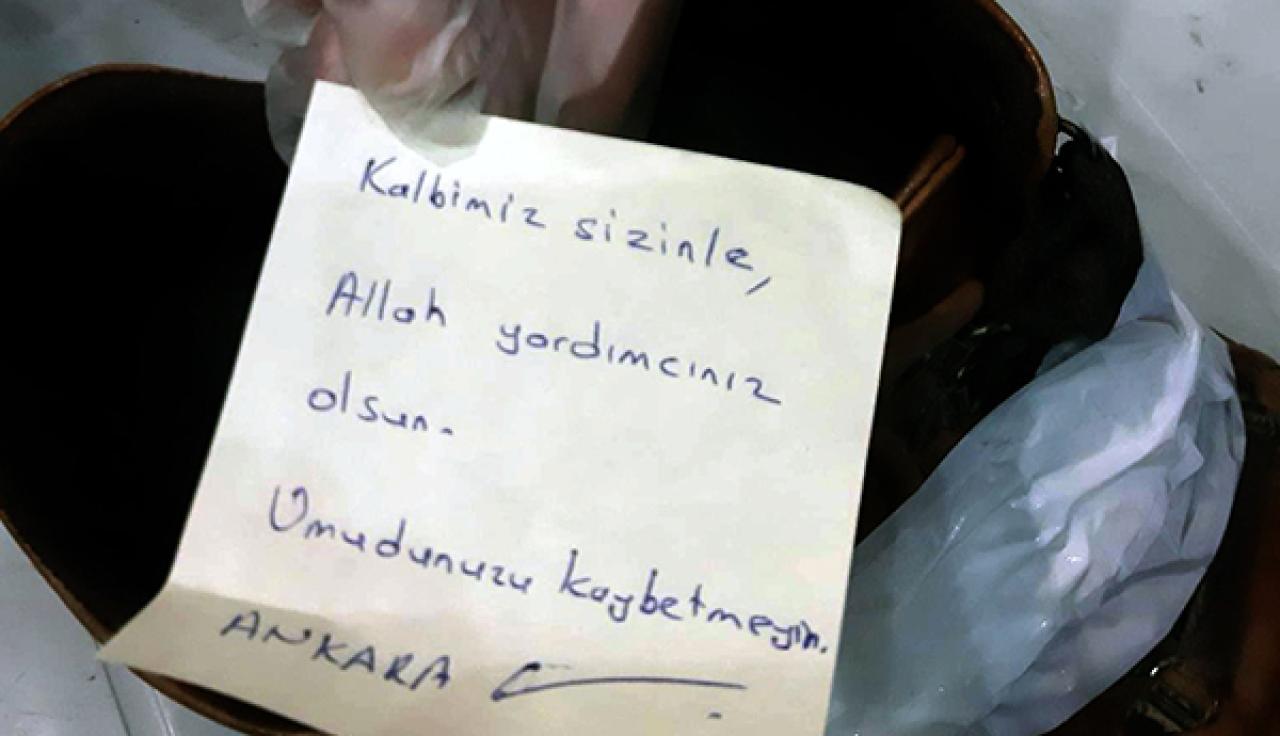 Kalbimiz sizinle,
Allah yardımcınız
olsun.
Umudunuzu kaybetmeyin.
ANKARA